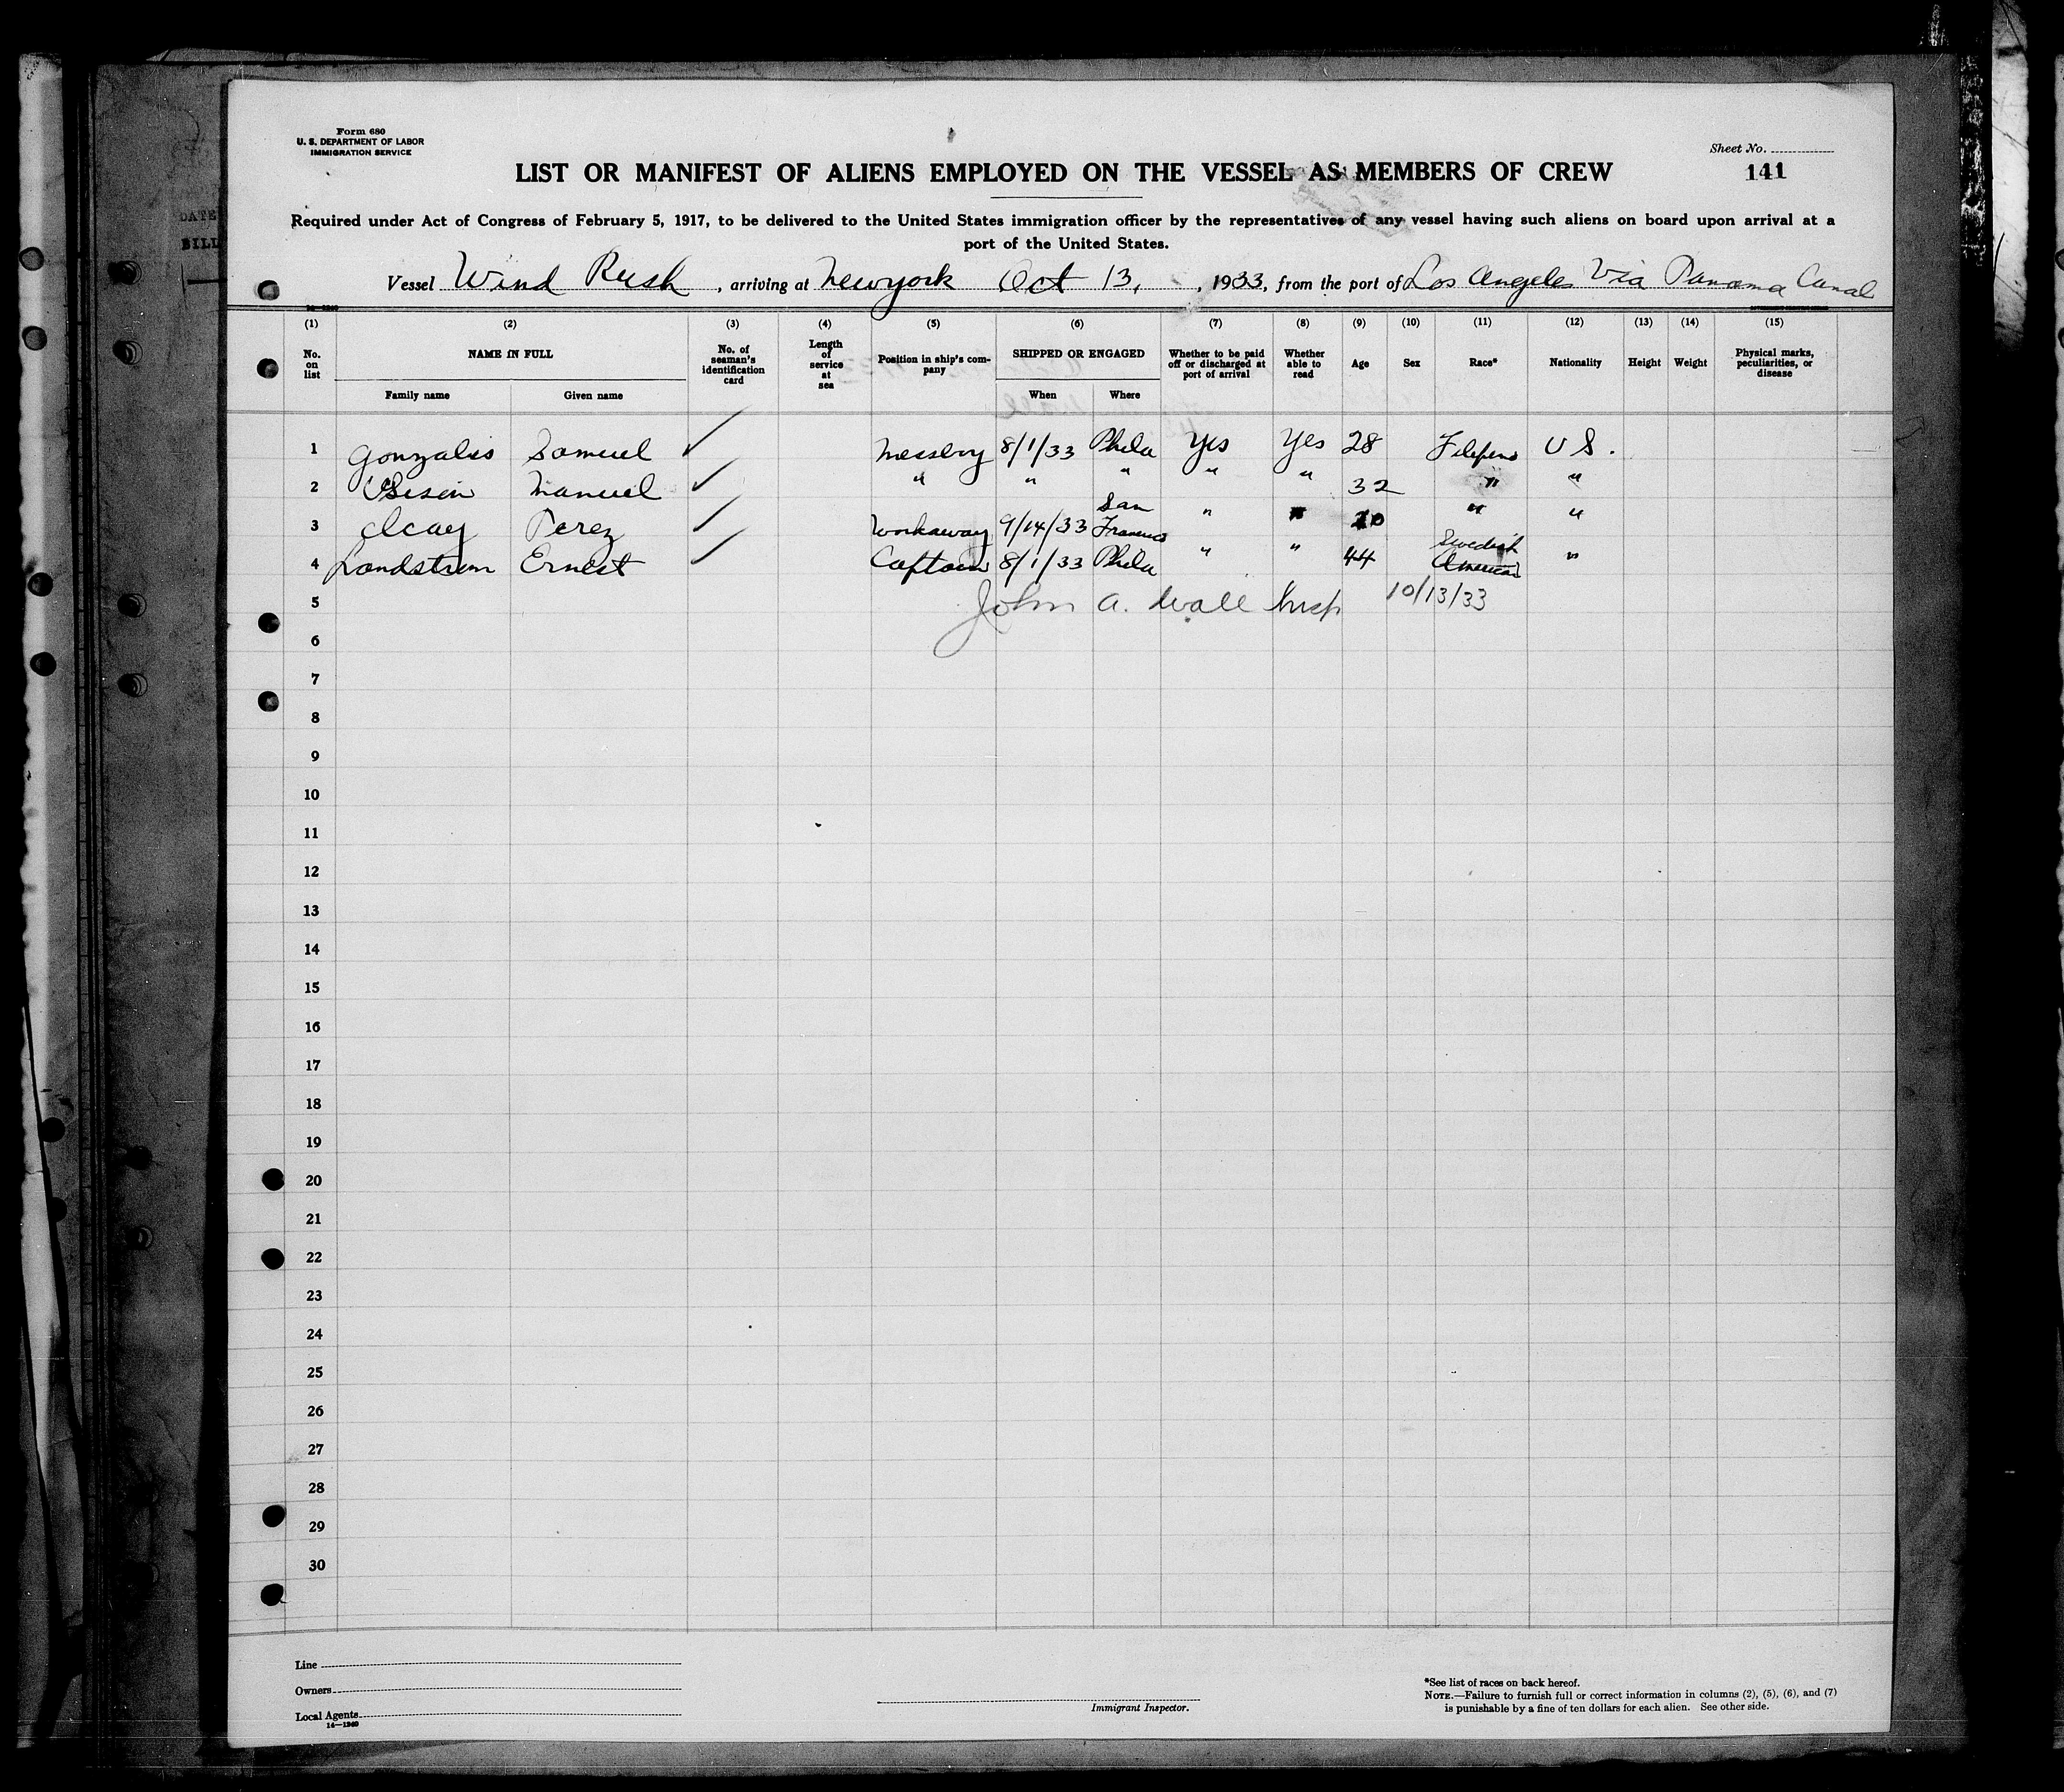 Form 680
U. S. DEPARTMENT OF LABOR
IMMIGRATION SERVICE
Sheet No.
141
LIST OR MANIFEST OF ALIENS EMPLOYED ON THE VESSEL AS MEMBERS OF CREW
Required under Act of Congress of February 5, 1917, to be delivered to the United States immigration officer by the representatives of any vessel having such aliens on board upon arrival at a
port of the United States.
Vessel Wind Rush, arriving at Newyork Oct 13, , 1933, from the port of Los Angeles Via Panama Canal
14—1240
(1) (2) (3) (4) (5) (6) (7) (8) (9) (10) (11) (12) (13) (14) (15)
No. on list NAME IN FULL No. of seaman's identification card Length of service at sea Position in ship's company SHIPPED OR ENGAGED Whether to be paid off or discharged at port of arrival Whether able to read Age Sex Race* Nationality Height Weight Physical marks, peculiarities, or disease
Family name Given name When Where
1 Gonzales Samuel ✓ Messboy 8/1/33 Phila Yes Yes 28 Filepeno U S.
2 Manuel ✓ " " " " " 32 " "
3 Perez ✓ Workaway 9/14/33 San Francisco " " " "
4 Landstrem Ernest ✓ Captain 8/1/33 Phila " " 44 Swedish American "
5 John A. Wall Insp 10/13/33
6
7
8
9
10
11
12
13
14
15
16
17
18
19
20
21
22
23
24
25
26
27
28
29
30
Line
Owners
Local Agents
14—1240
Immigrant Inspector.
*See list of races on back hereof.
NOTE.—Failure to furnish full or correct information in columns (2), (5), (6), and (7)
is punishable by a fine of ten dollars for each alien. See other side.
DATE
BILL